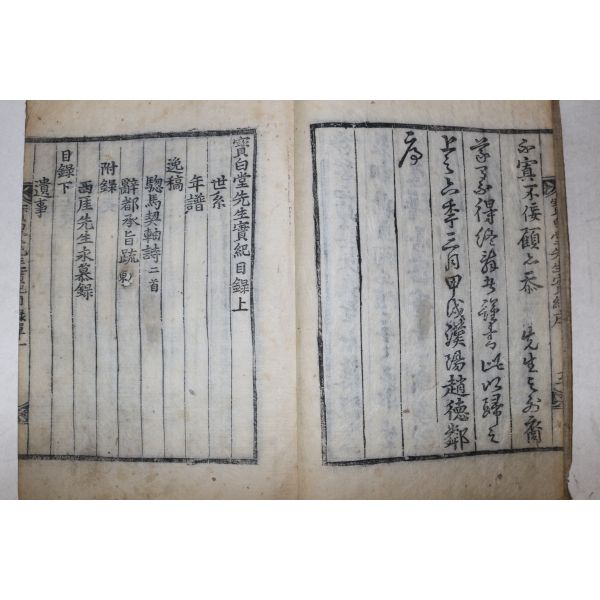 不佞顧亦忝 先生之外裔
遂不得終辭書此以歸之
上之六年三月甲戌漢陽趙德鄰
序
寶白堂先生實紀目錄上
世系
年譜
逸稿
驄馬契軸詩二首
辭都承旨疏
附錄
西厓先生永慕錄
目錄下
遺事